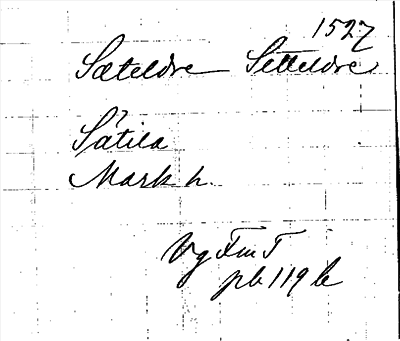 1527
Sæteldre Setteldre
Sätila
Marks h.
Vg FmT
pb 119 b